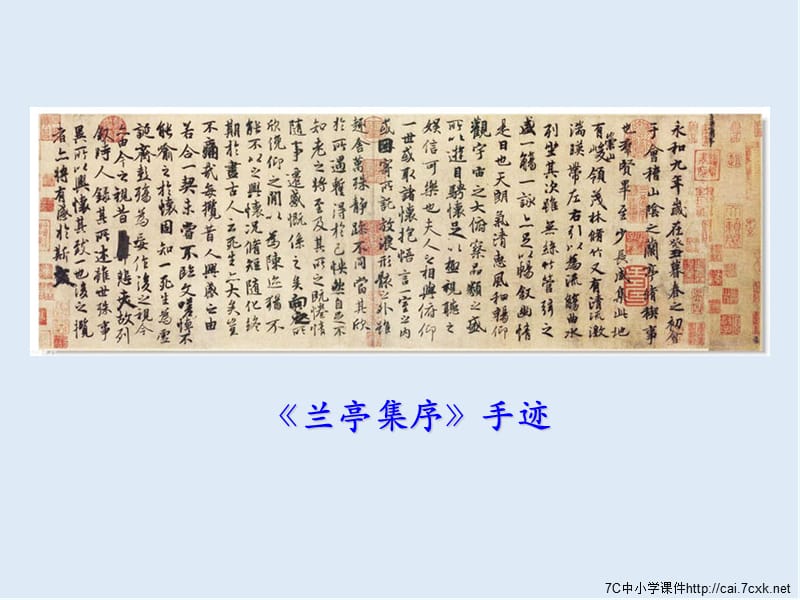 永和九年歲在癸丑暮春之初會
于會稽山陰之蘭亭脩稧事
也羣賢畢至少長咸集此地
有崇山峻領茂林脩竹又有清流激
湍暎帶左右引以為流觴曲水
列坐其次雖無絲竹管弦之
盛一觴一詠亦足以暢敘幽情
是日也天朗氣清惠風和暢仰
觀宇宙之大俯察品類之盛
所以遊目騁懷足以極視聽之
娛信可樂也夫人之相與俯仰
一世或取諸懷抱悟言一室之內
或因寄所託放浪形骸之外雖
趣舍萬殊靜躁不同當其欣
於所遇暫得於己怏然自足不
知老之將至及其所之既惓情
隨事遷感慨係之矣向之所
欣俛仰之間以為陳迹猶不
能不以之興懷況脩短隨化終
期於盡古人云死生亦大矣豈
不痛哉每攬昔人興感之由
若合一契未嘗不臨文嗟悼不
能喻之於懷固知一死生為虛
誕齊彭殤為妄作後之視今
亦由今之視昔悲夫故列
敘時人錄其所述雖世殊事
異所以興懷其致一也後之攬
者亦將有感於斯文
《兰亭集序》手迹
7C中小学课件http://cai.7cxk.net